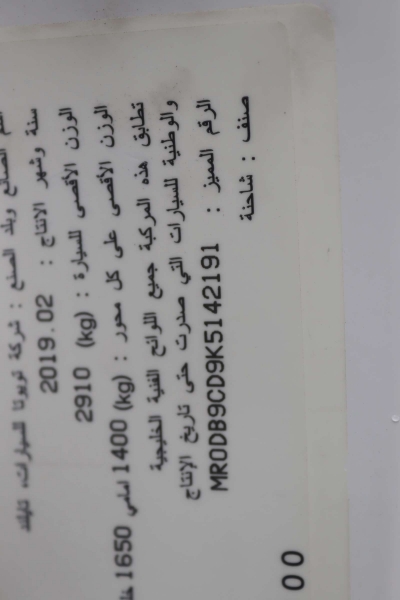 اسم الصانع وبلد الصنع : شركة تويوتا للسيارات، تايلند
سنة وشهر الانتاج : 2019.02
الوزن الأقصى للسيارة : 2910 (kg)
الوزن الأقصى على كل محور : 1400 (kg) امامي 1650
تطابق هذه المركبة جميع اللوائح الفنية الخليجية
والوطنية للسيارات التي صدرت حتى تاريخ الإنتاج
الرقم المميز : MR0DB9CD9K5142191
صنف : شاحنة
00